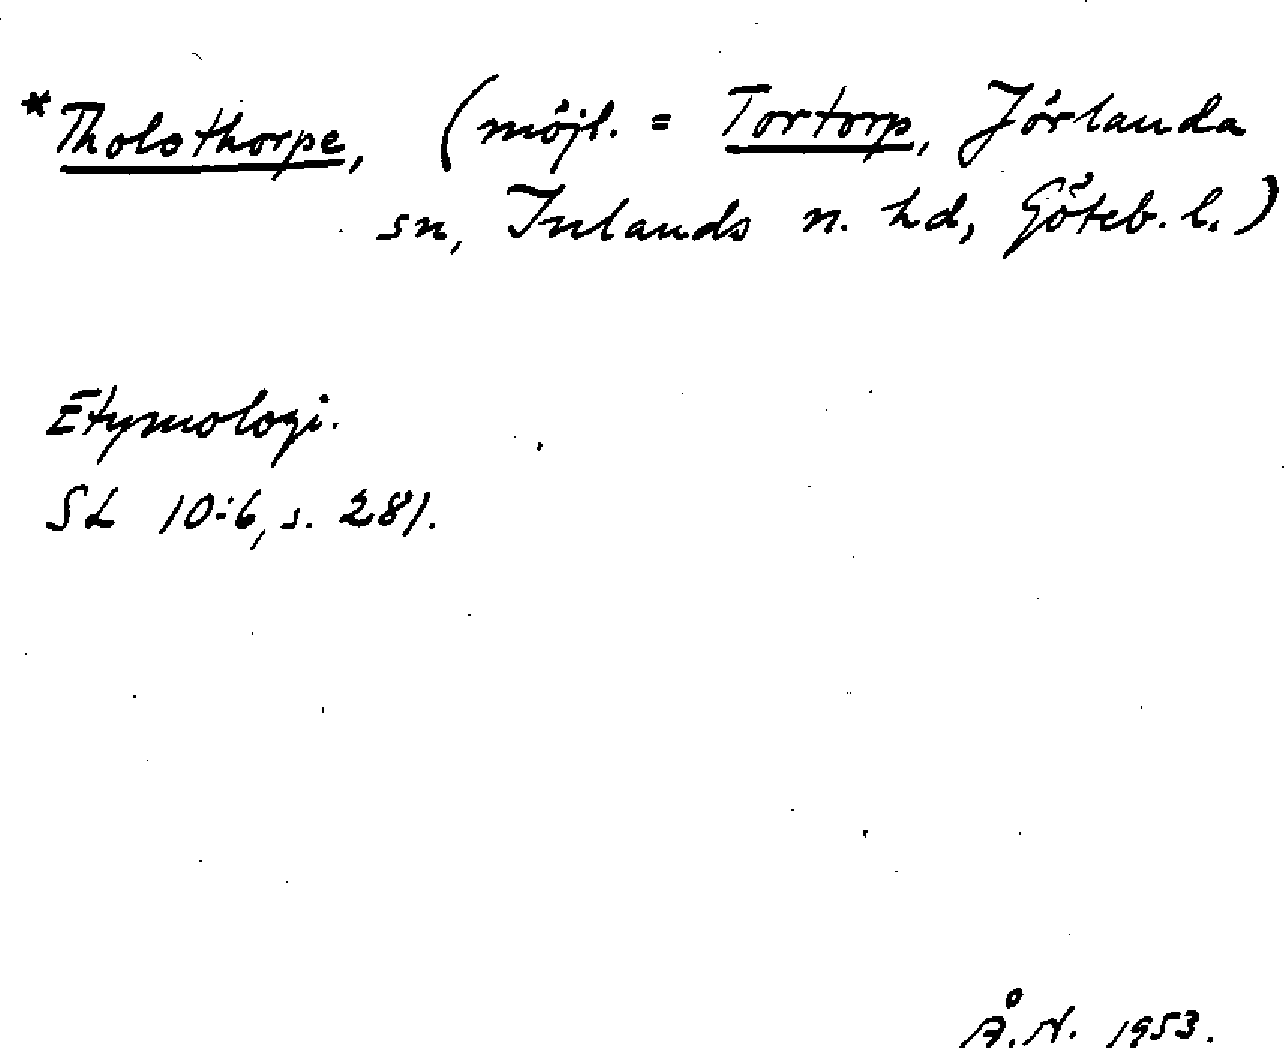 *Tholothorpe, (möjl. = Tortorp, Jörlanda
sn, Inlands n. hd, Göteb. l.)
Etymologi.
SL 10:6, s. 281.
Å.N. 1953.